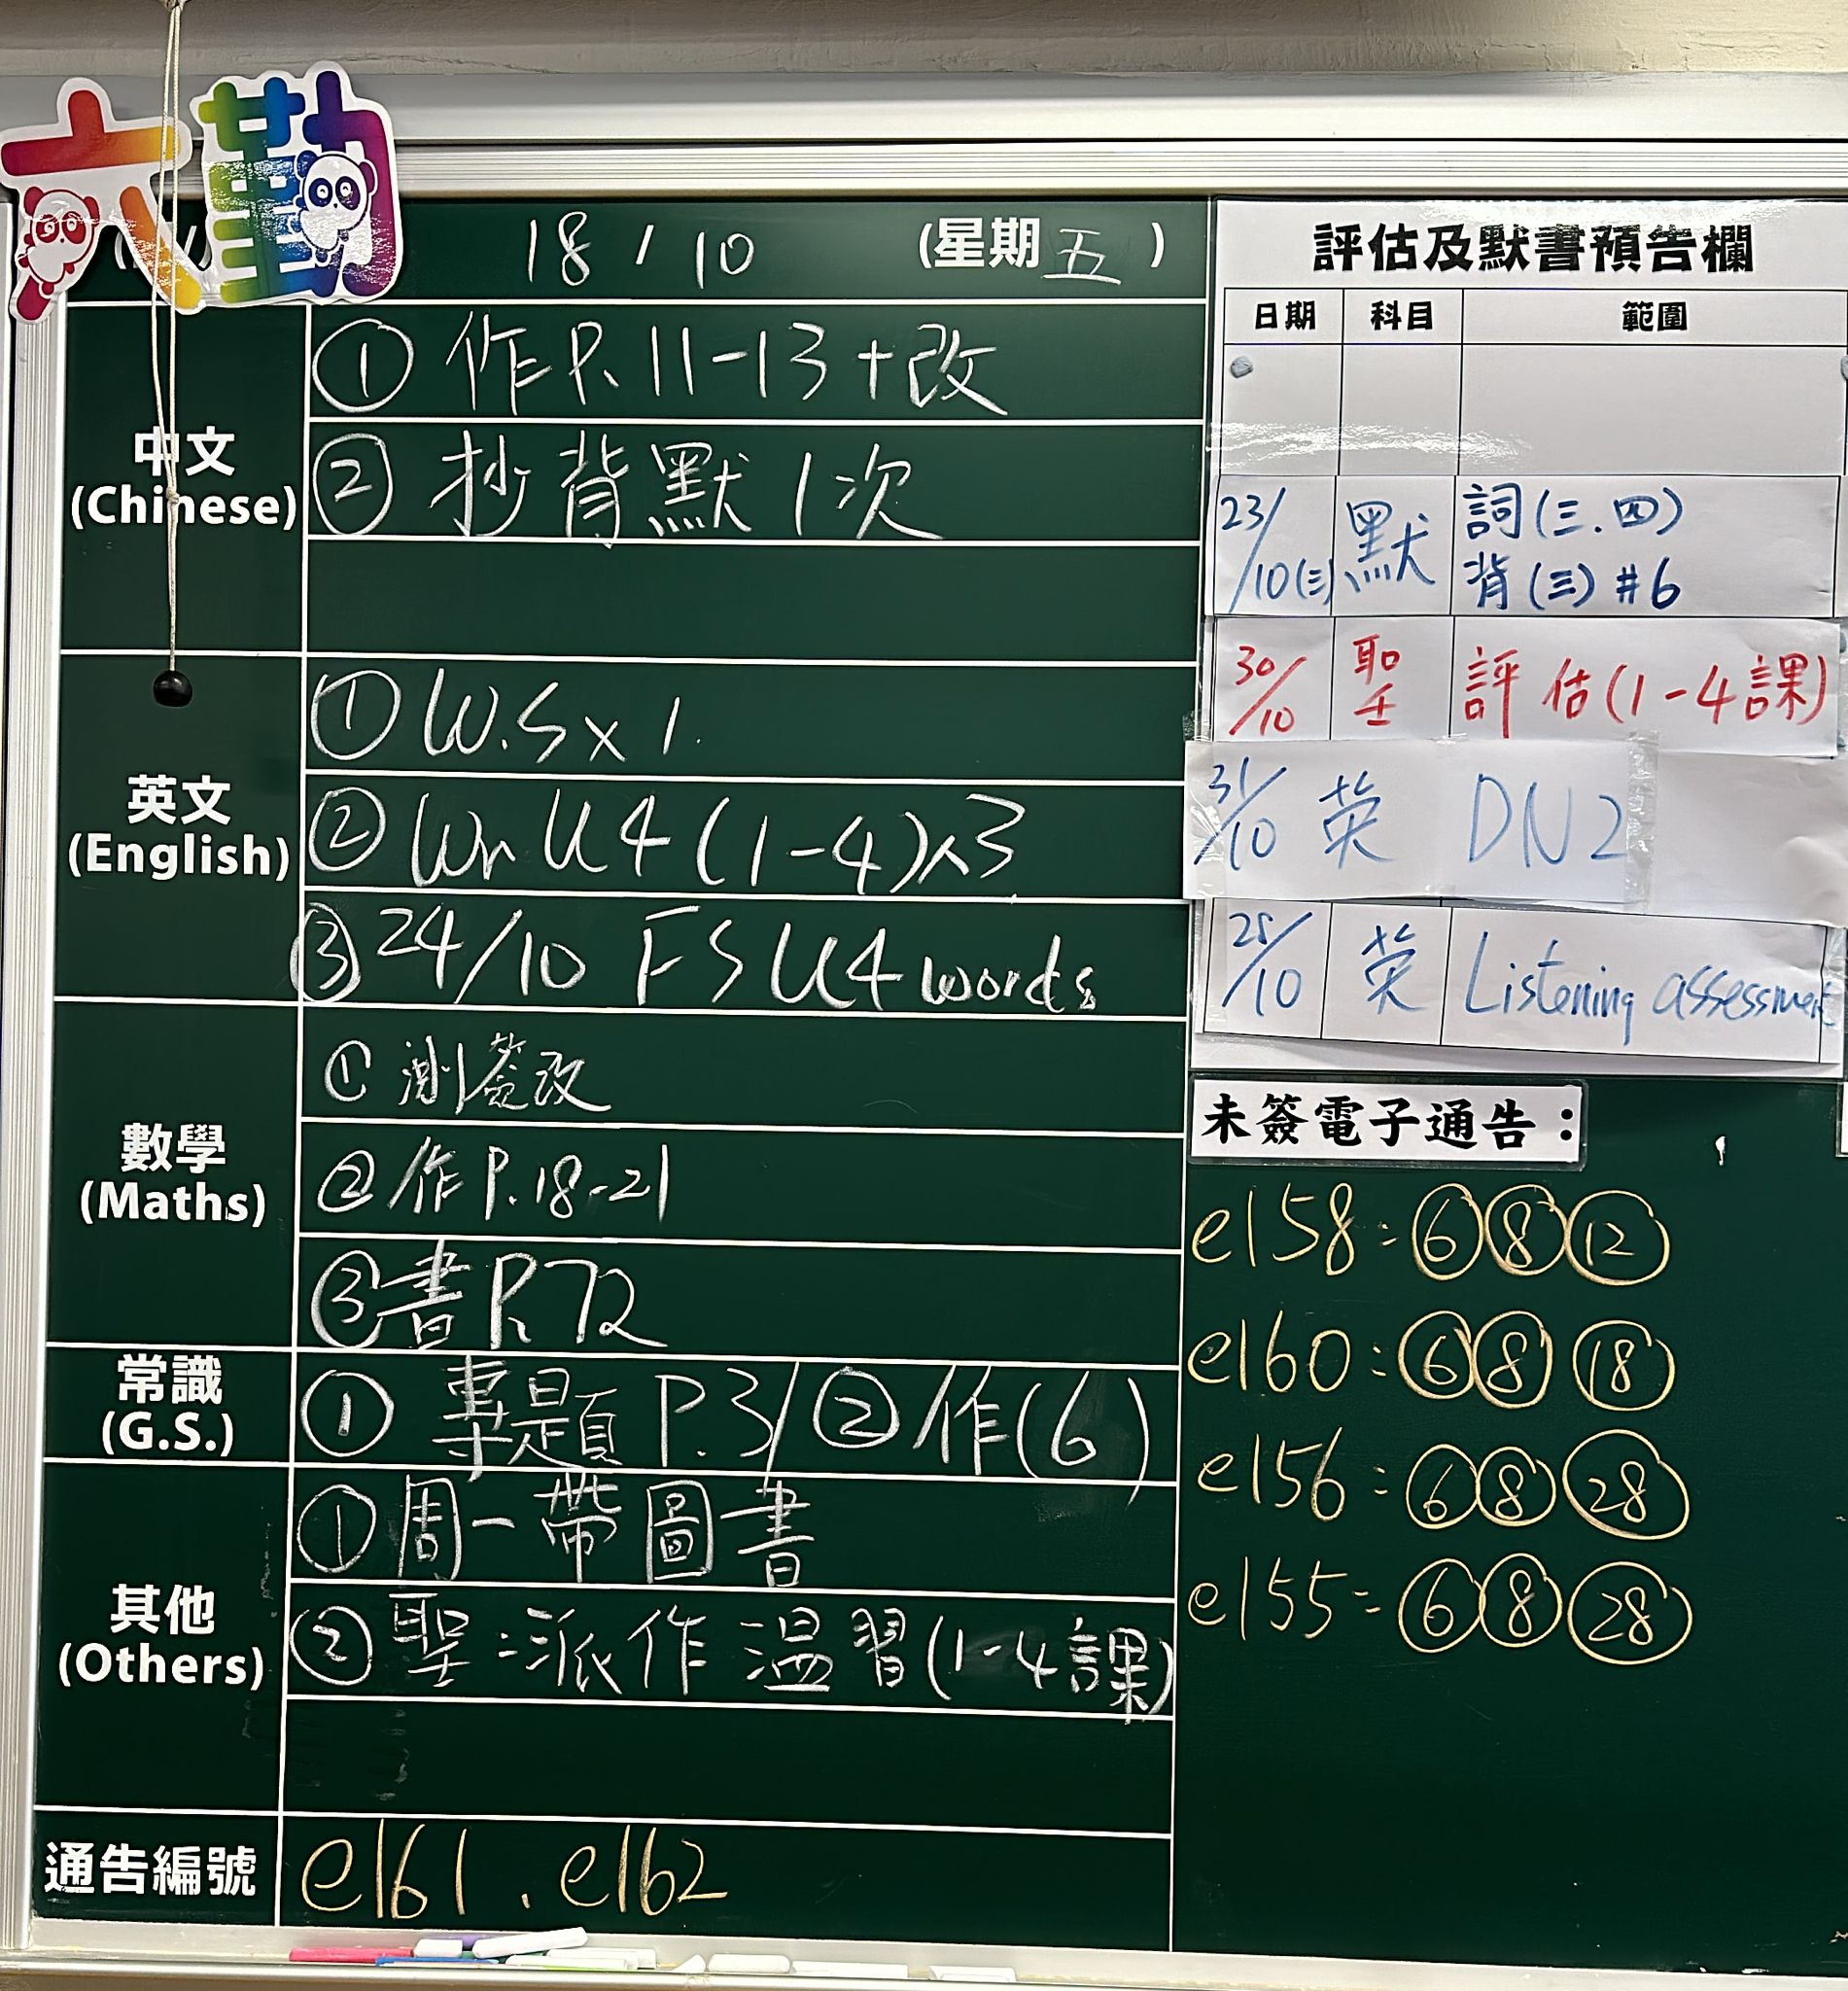 六勤
18 / 10 (星期五)
中文
(Chinese)
① 作P.11-13+改
② 抄背默1次
英文
(English)
① W.S x 1.
② Wr U4 (1-4)x3
③ 24/10 FS U4 words
數學
(Maths)
① 測簽改
② 作P.18-21
③ 書P.72
常識
(G.S.)
① 專題 P.3/② 作(6)
其他
(Others)
① 周一帶圖書
② 聖:派作温習(1-4課)
通告編號
e161 . e162
評估及默書預告欄
日期 科目 範圍
23/10(三) 默 詞(三.四)
背(三)#6
30/10 聖 評估(1-4課)
31/10 英 DN2
/10 英 Listening assessment
未簽電子通告：
e158: ⑥⑧⑫
e160: ⑥⑧⑱
e156: ⑥⑧㉘
e155: ⑥⑧㉘